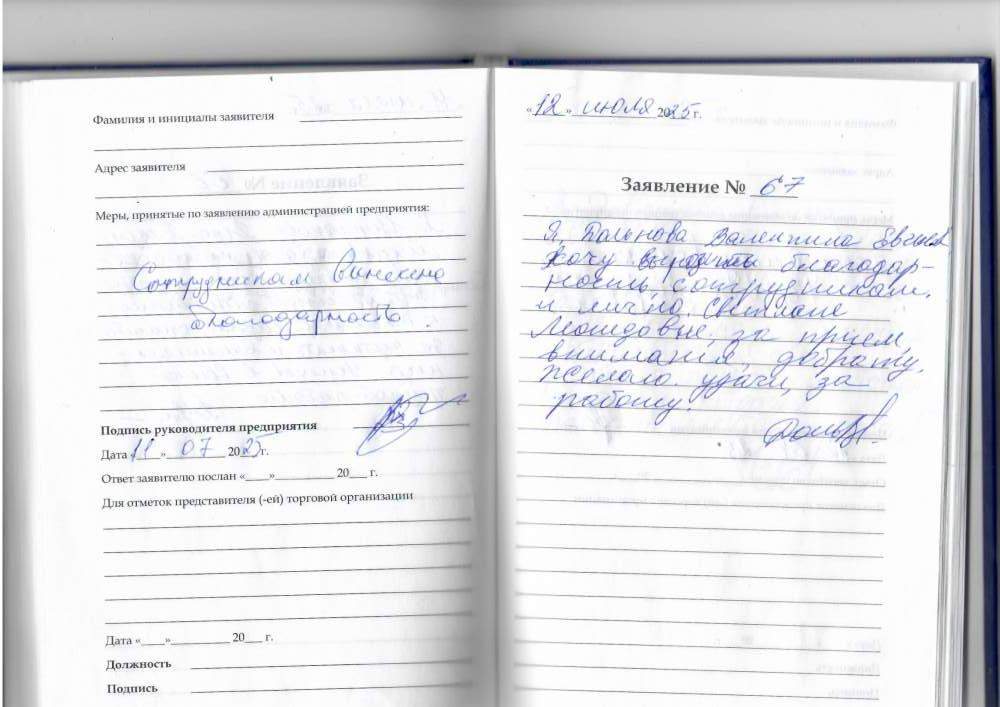 Фамилия и инициалы заявителя
Адрес заявителя
Меры, принятые по заявлению администрацией предприятия:
Сотрудникам вынесена
благодарность
Подпись руководителя предприятия
Дата «11» 07 2025г.
Ответ заявителю послан «____»__________ 20___ г.
Для отметок представителя (-ей) торговой организации
Дата «____»__________ 20___ г.
Должность
Подпись
«12» июля 2025г.
Заявление № 67
Я, Валентина
хочу выразить благодар-
ность сотрудникам,
и лично Светлане
за прием,
внимания, доброту.
Желаю удачи, за
работу.